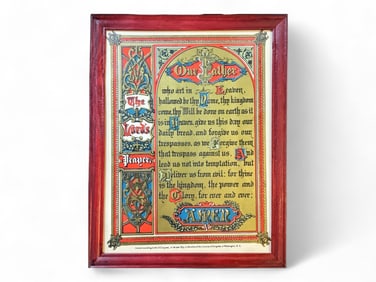 The
Lords
Prayer.
Our Father
who art in Heaven,
hallowed be thy Name, thy kingdom
come, thy Will be done on earth as it
is in Heaven, give us this day our
daily bread, and forgive us our
trespasses, as we Forgive them
that trespass against us. And
lead us not into temptation, but
Deliver us from evil: for thine
is the kingdom, the power and
the Glory, for ever and ever:
AMEN